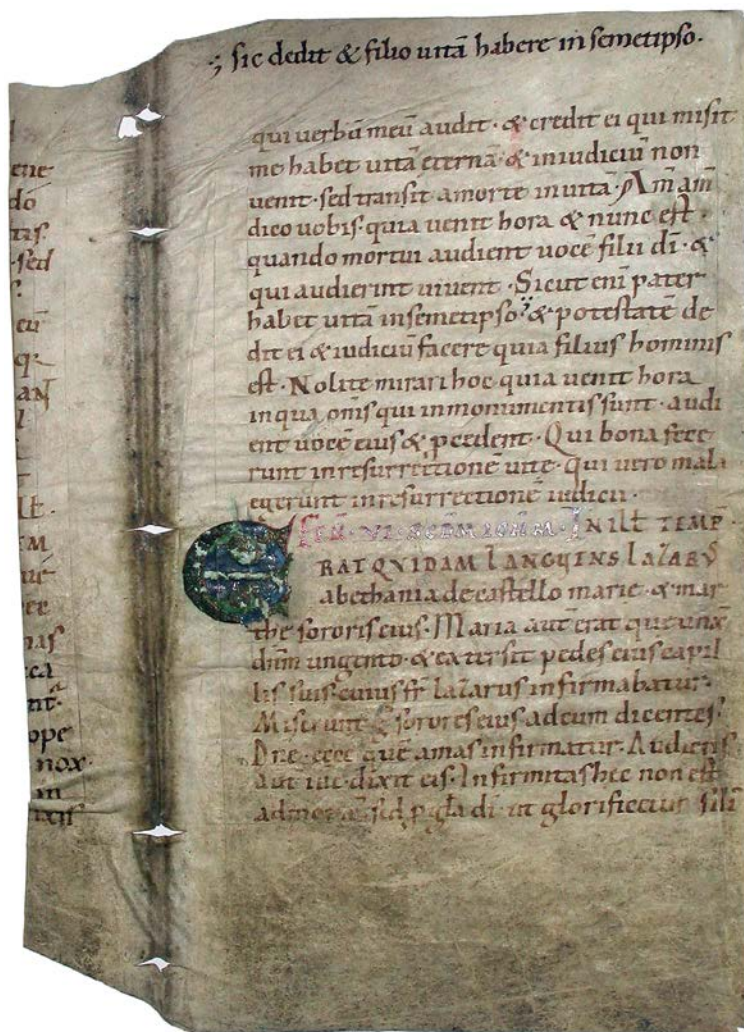 ·; sic dedit & filio uitā habere in semetipso·
qui uerbū meū audit· & credit ei qui misit
me habet uitā eternā· & in iudiciū non
uenit· sed transit a morte in uitā· Am̄ am̄
dico uobis· quia uenit hora & nunc est·
quando mortui audient uocē filii dī· &
qui audierint uiuent· Sicut enī pater
habet uitā insemetipso·; & potestatē de
dit ei & iudiciū facere quia filius hominis
est· Nolite mirari hoc quia uenit hora
inqua oms̄ qui inmonumentis sunt· audi
ent uocē eius & pcedent· Qui bona fece
runt inresurrectionē uite· qui uero mala
egerunt inresurrectionē iudicii·
INILŁ TEMP̄
ERAT QVIDAM LANGUENS LAZARV̄
abethania decastello marie· & mar
the sororis eius· Maria aut̄ erat que unx̄
dn̄m ungento· & extersit pedes eius capil
lis suis· cuius fr̄ lazarus infirmabatur·
Miserunt sorores eius adeum dicentes·
Dn̄e· ecce quē amas infirmatur· Audiens
aut̄ ih̄c dixit eis· Infirmitas hec non est
admortē· sed p gła dī· ut glorificetur filī
ene
dó
tis·
·sed
eū
q·
AN̄
EM
ué
ee
nas
ca
ope
nox·
in